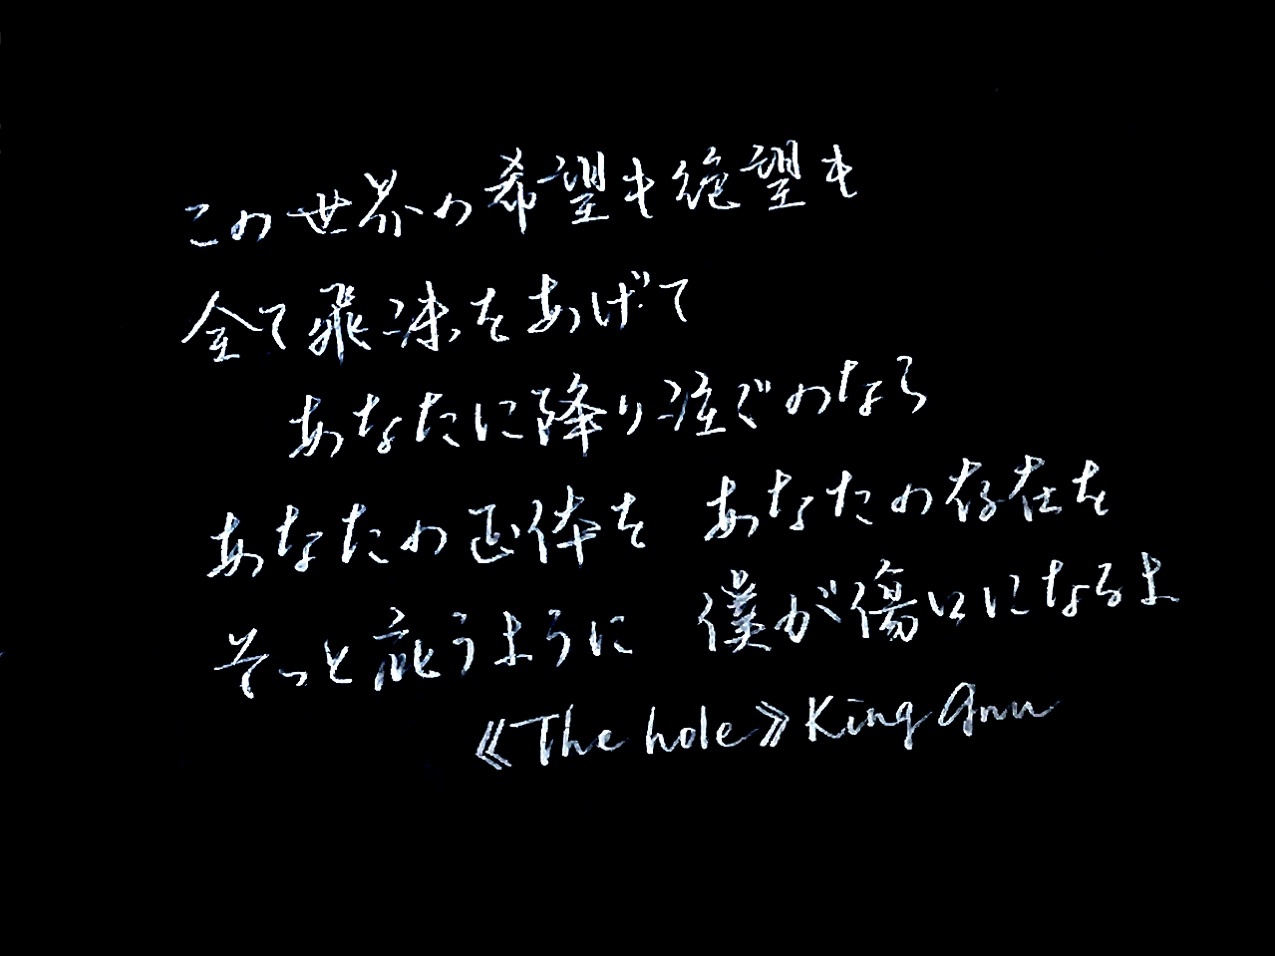 この世界の希望も絶望も
全て飛沫をあげて
あなたに降り注ぐのなら
あなたの正体を あなたの存在を
そっと庇うように 僕が傷口になるよ
《The hole》King Gnu